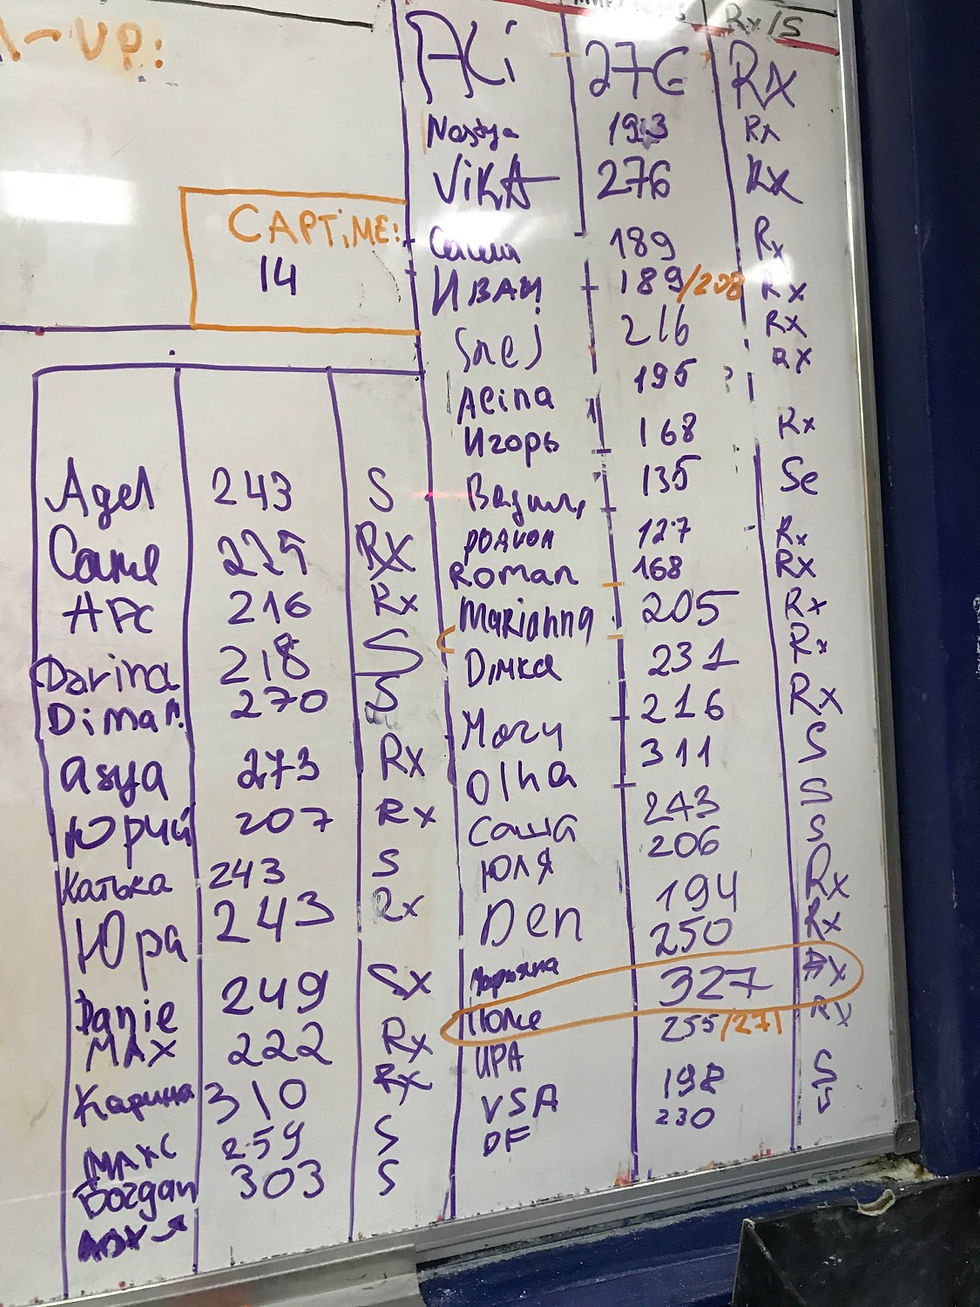 -UP:
Rx/S
ACi 276 RX
Nastya 193 Rx
ViKA 276 RX
Саша 189 Rx
ИВАН 189/208 Rx
Snej 216 Rx
Alina 195 RX
Игорь 168 Rx
Вадим 135 Sc
127 Rx
Roman 168 Rx
Marianna 205 Rx
Dимка 231 Rx
216 Rx
Olha 311 S
Саша 243 S
ЮЛЯ 206 S
Den 194 Rx
Марьяна 250 Rx
327 Rx
ИРА 255/271 Rx
VSA 198 S
DF 230 S
CAPTiME:
14
Адел 243 S
Саме 225 RX
216 Rx
Darina 218 S
Diman 270 S
asya 273 Rx
Юрий 207 Rx
Катька 243 S
Юра 243 Rx
Danie 249 Sx
MAX 222 Rx
Карина 310 Rx
МАКС 259 S
Bogdan 303 S